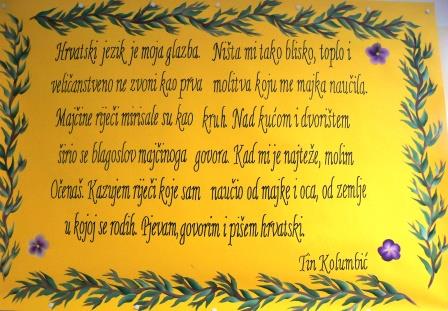 Hrvatski jezik je moja glazba. Ništa mi tako blisko, toplo i
veličanstveno ne zvoni kao prva molitva koju me majka naučila.
Majčine riječi mirisale su kao kruh. Nad kućom i dvorištem
širio se blagoslov majčinoga govora. Kad mi je najteže, molim
Očenaš. Kazujem riječi koje sam naučio od majke i oca, od zemlje
u kojoj se rodih. Pjevam, govorim i pišem hrvatski.
Tin Kolumbić